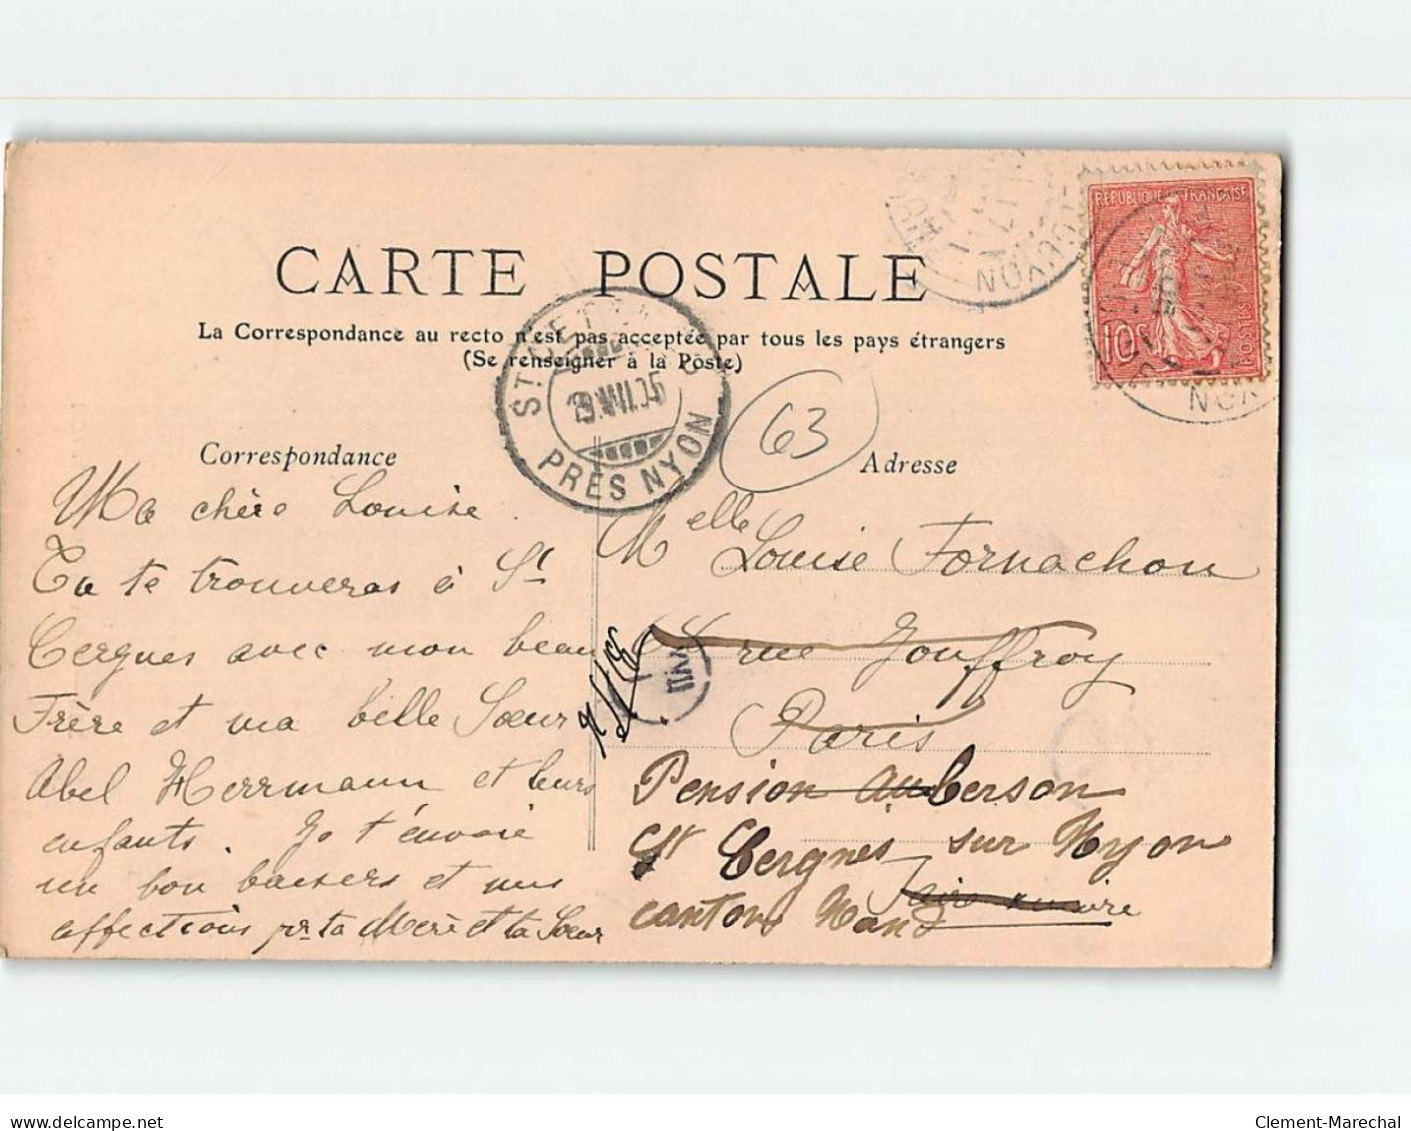 CARTE POSTALE
La Correspondance au recto n'est pas acceptée par tous les pays étrangers
(Se renseigner à la Poste)
RÉPUBLIQUE FRANÇAISE
10c
POSTES
PRÈS NYON
63
Correspondance
Ma chère Louise.
Tu te trouveras à St
Cergues avec mon beau
Frère et ma belle Sœur
Abel Herrmann et leurs
enfants. Je t'envoie
un bon baisers et mes
affections pr ta Mère et ta Sœur
Adresse
Melle Louise Fornachon
rue Jouffroy
Paris
Pension Auberson
St Cergues sur Nyon
canton Vaud
delcampe.net
Clement-Marechal